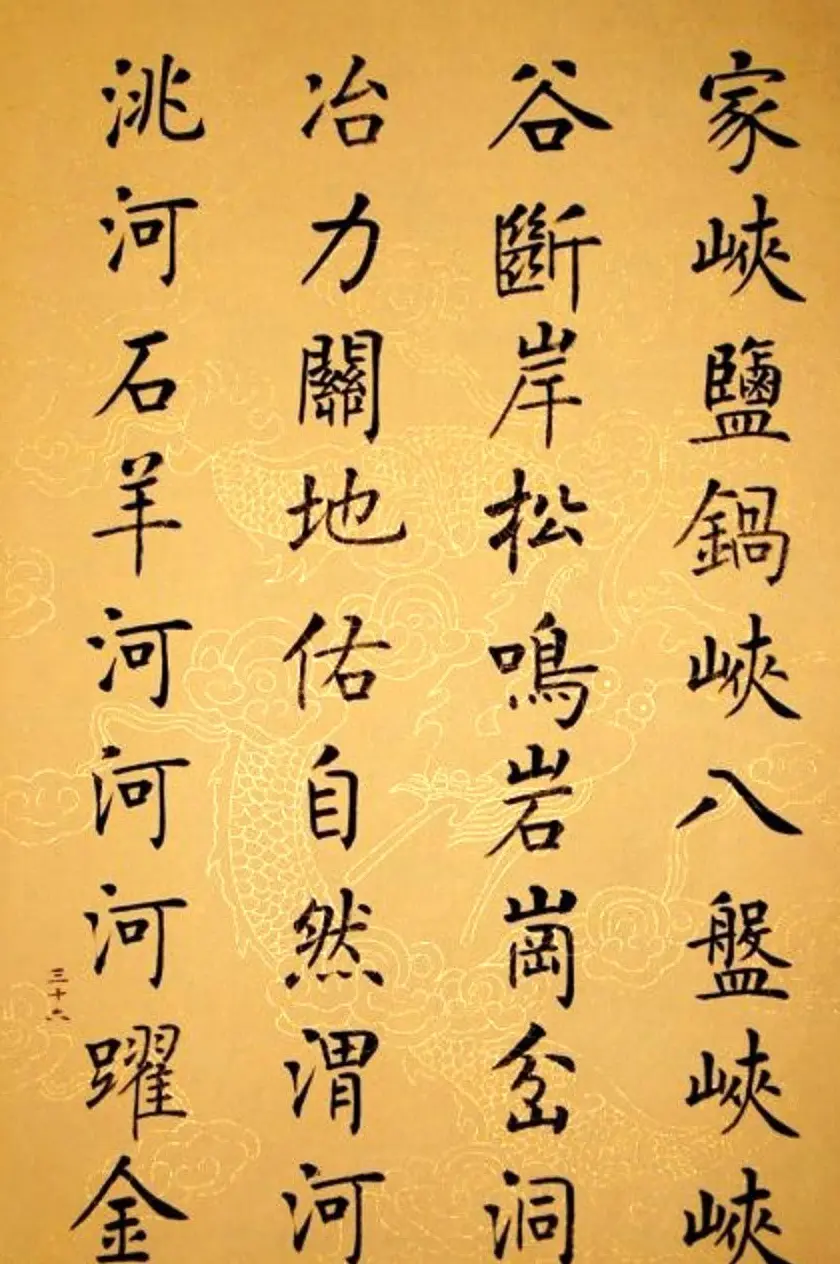 家峽鹽鍋峽八盤峽峽
谷斷岸松鳴岩崗岔洞
冶力關地佑自然渭河
洮河石羊河河河躍金
三十六